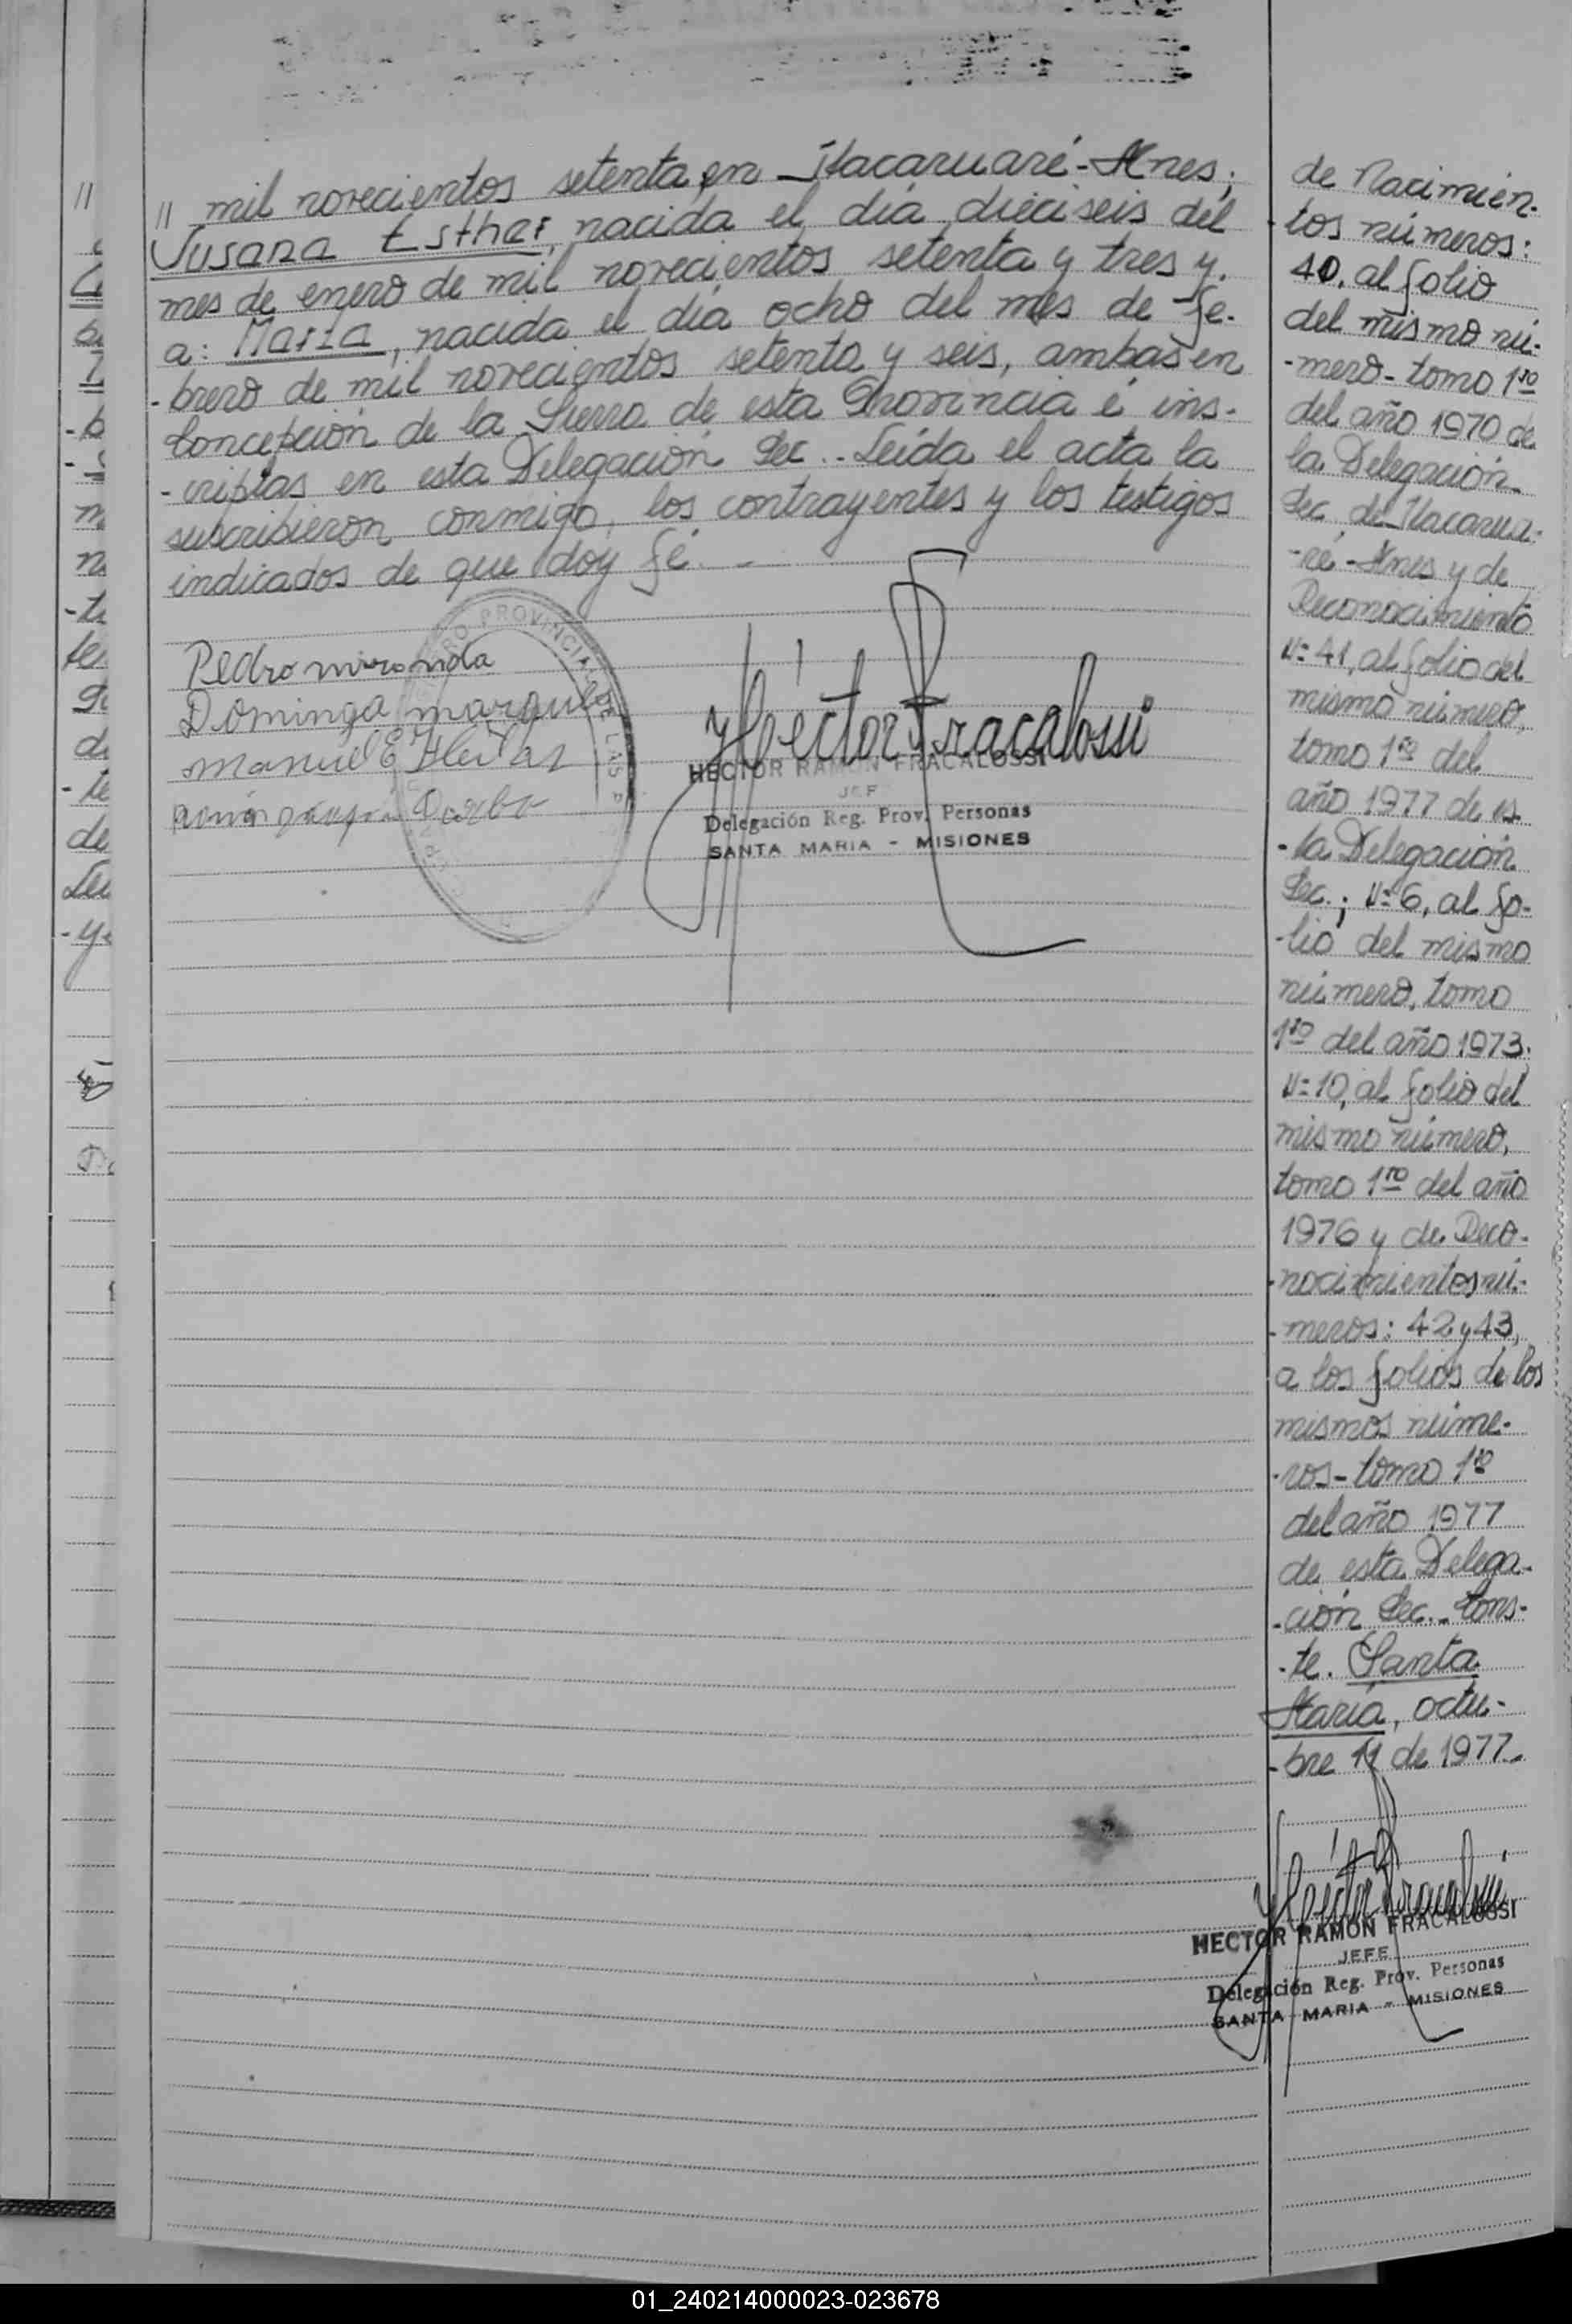 // mil novecientos setenta, en Itacaruaré-Mnes;
Susana Esther, nacida el día dieciseis del
mes de enero de mil novecientos setenta y tres y.
a: María, nacida el día ocho del mes de fe-
-brero de mil novecientos setenta y seis, ambas en
Concepción de la Sierra de esta Provincia é ins-
-criptas en esta Delegación Sec.. Leída el acta la
subscribieron conmigo, los contrayentes y los testigos
indicados de que doy fé. -
Pedro miranda
Dominga marquez
manuel E
REGISTRO PROVINCIAL DE LAS P
Héctor Fracalossi
HECTOR RAMON FRACALOSSI
JEF
Delegación Reg. Prov. Personas
SANTA MARIA - MISIONES
de Nacimien-
-tos números:
40, al folio
del mismo nú-
-mero- tomo 1ro
del año 1970 de
la Delegación
Sec. de Itacarua-
-ré-Mnes y de
Reconocimiento
Nº 41, al folio del
mismo número,
tomo 1ro del
año 1977 de es
-ta Delegación
Sec.; Nº 6, al fo-
-lio del mismo
número, tomo
1ro del año 1973;
Nº 10, al folio del
mismo número,
tomo 1ro del año
1976 y de Reco-
-nocimientos nú-
-meros: 42 y 43,
a los folios de los
mismos núme-
-ros- tomo 1ro
del año 1977
de esta Delega-
-ción Sec.. Cons-
-te. Santa
María, octu-
-bre 11 de 1977.
Héctor Fracalossi
HECTOR RAMON FRACALOSSI
JEFE
Delegación Reg. Prov. Personas
SANTA MARIA - MISIONES
01_240214000023-023678